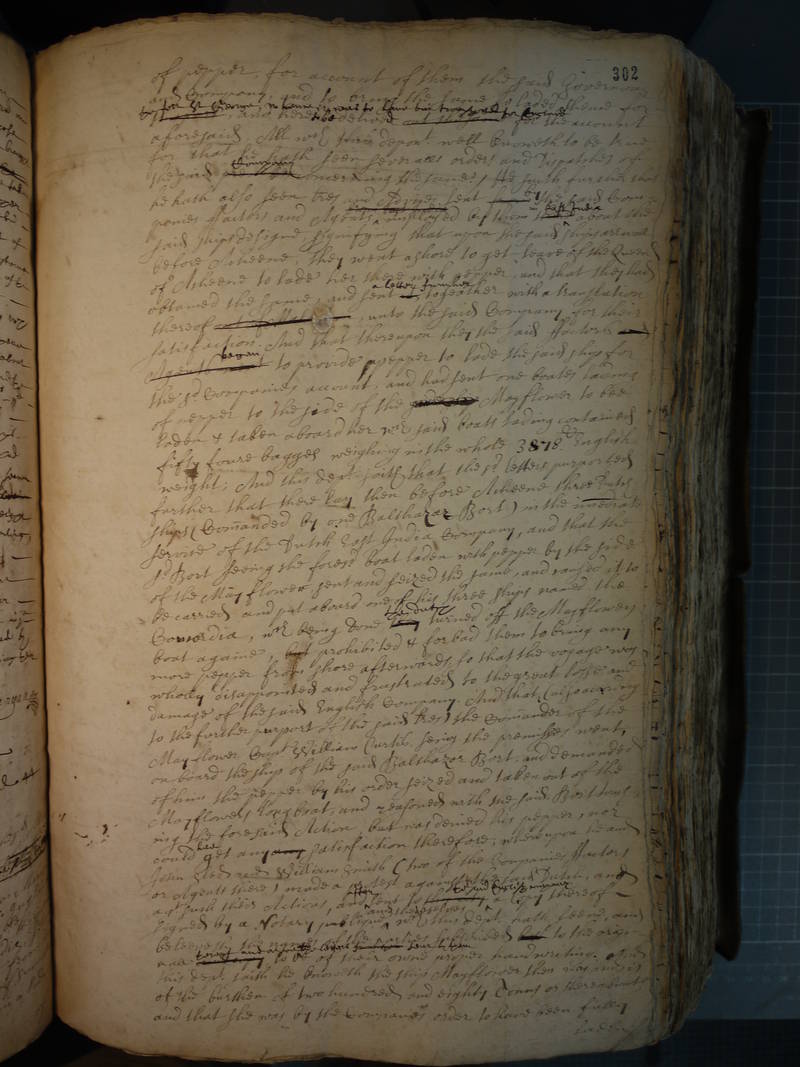 302
of pepper, for account of them the said Governour
and Company, and to
and there the account
aforesaid, All wch this depont well knoweth to be true
for that he hath seen severall orders and dispatches of
the said Company concerning the same, He saith further that
he hath also seen sent by the said Com-
panies Factors and Agents employed by them in East India about the
said ships designe signifying that upon the said ships arrivall
before Acheene, they went ashore to get leave of the Queen
of Acheene to lade her there with pepper, and that they had
obtained the same, and sent together with a translation
thereof unto the said Company for their
satisfaction. And that thereupon they the said Factors
began to provide pepper to lade the said ship for
the sd Companies account, and had sent one boates lading
of pepper to the side of the Mayflower to bee
laden & taken aboard her wch said boats lading contained
fifty foure bagges weighing in the whole 3878 English
weight; And this dept saith that the sd letters purported
further that there lay then before Acheene three Dutch
ships (Comanded by one Balthazar Bort) in the immediate
service of the Dutch East India Company, and that the
sd Bort seeing the foresd boat laden with pepper by the side
of the Mayflower sent and seized the same, and caused it to
be carried and put aboard one of his three ships named the
Concordia, wch being done turned off the Mayflowers
boat againe, prohibited & forbad them to bring any
more pepper from shore afterwards, so that the voyage was
wholly disappointed and frustrated to the great losse and
damage of the said English Company. And that (according
to the further purport of the said) the Comander of the
Mayflower Capt William Curtis seeing the premisses went
on board the ship of the said Balthazar Bort, and demanded
of him the pepper by his order seized and taken out of the
Mayflowers long boat, and reasoned with the said Bort touch-
ing the foresaid Action, but was denied his pepper, nor
could hee get any satisfaction therefore, whereupon he and
John and William Smith (two of the Companies Factors
or Agents there) made a protest against the said Dutch, and
agt such their Actions, and after sent a copy thereof
signed by a Notary publique, wch this dept hath seene, and
to the origi-
nall to be of their owne proper hand writing. And
this dept saith he knoweth the ship Mayflower then was and is
of the burthen of two hundred and eighty Tonns or thereabout
and that she was by the Companies order to have been fully